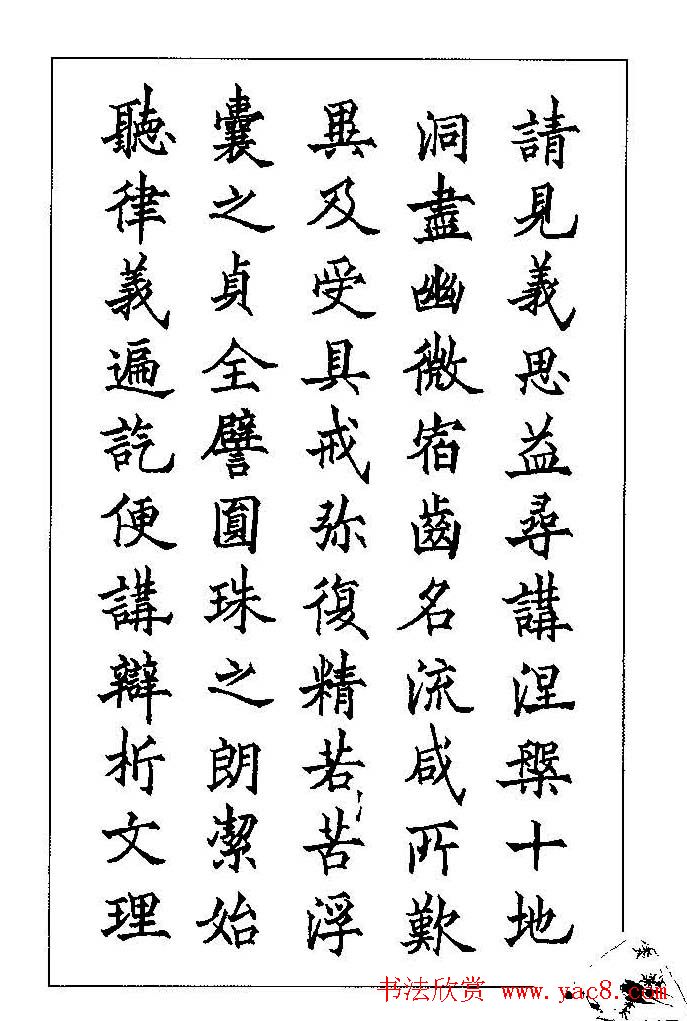 請見義思益尋講涅槃十地
洞盡幽微宿齒名流咸所歎
異及受具戒弥復精若苦浮
囊之貞全譬圓珠之朗潔始
聽律義遍訖便講辯析文理
书法欣赏 www.yac8.com